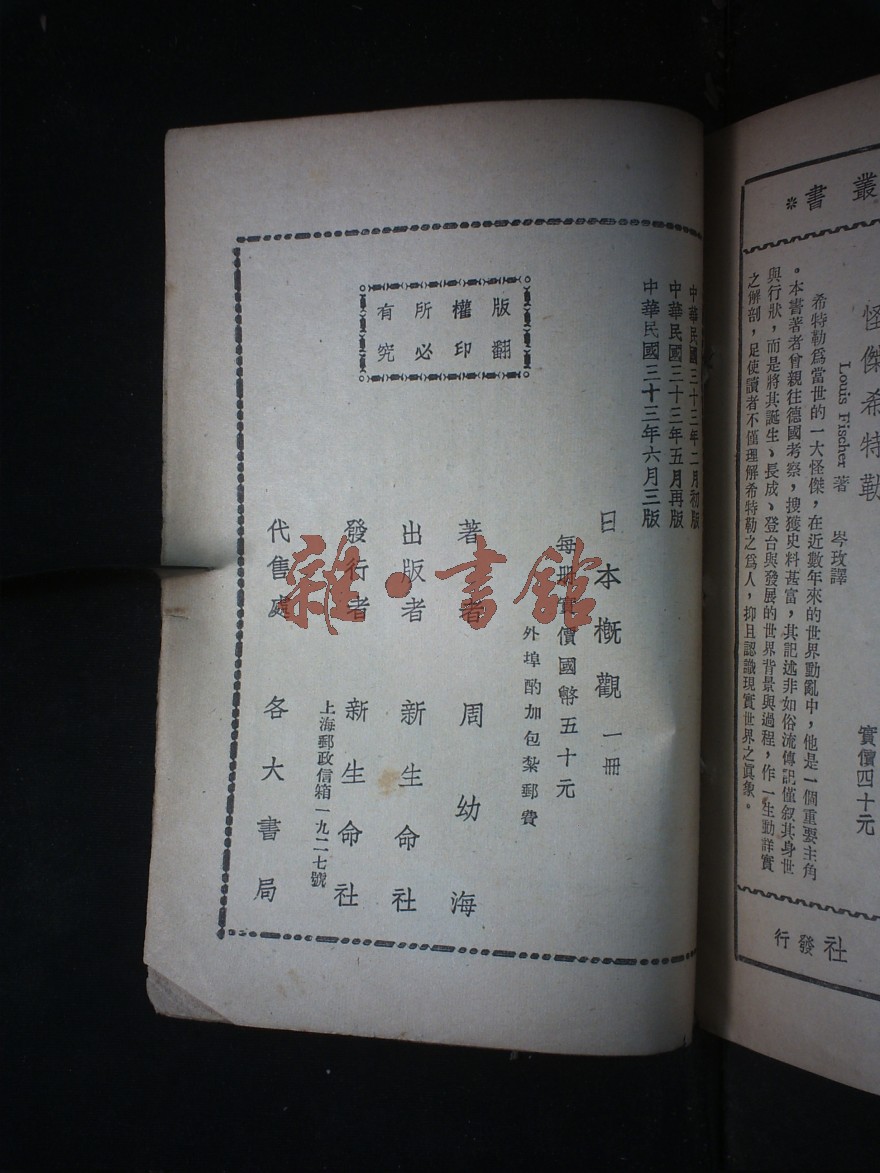 叢書*
怪傑希特勒
Louis Fischer 著 岑玫譯
實價四十元
希特勒爲當世的一大怪傑,在近數年來的世界動亂中,他是一個重要主角
。本書著者曾親往德國考察,搜獲史料甚富,其記述非如俗流傳記僅叙其身世
與行狀,而是將其誕生、長成、登台與發展的世界背景與過程,作一生動詳實
之解剖,足使讀者不僅理解希特勒之爲人,抑且認識現實世界之眞象。
社發行
中華民國三十三年二月初版
中華民國三十三年五月再版
中華民國三十三年六月三版
日本概觀 一冊
每冊實價國幣五十元
外埠酌加包紮郵費
著者 周幼海
出版者 新生命社
發行者 新生命社
上海郵政信箱一九二七號
代售處 各大書局
版權所有
翻印必究
雜·書館